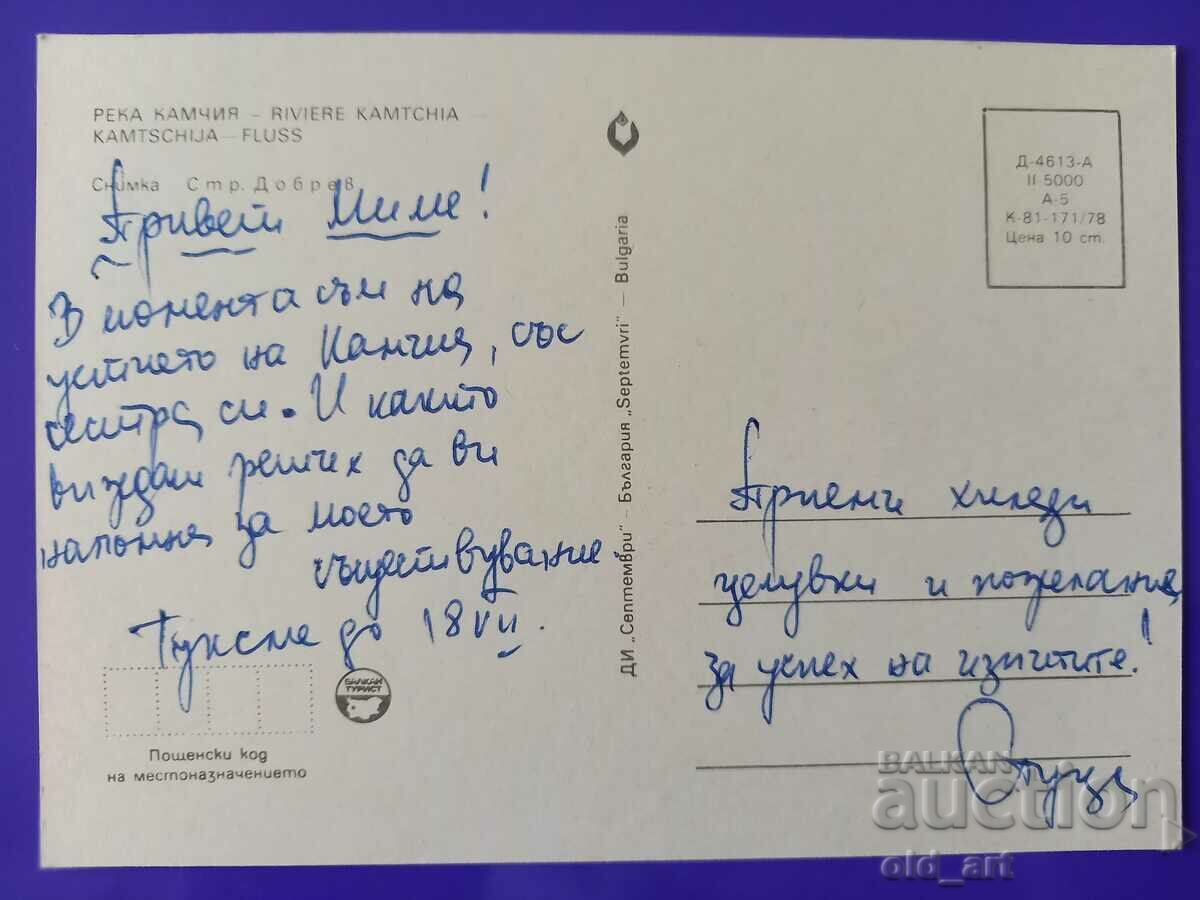 РЕКА КАМЧИЯ – RIVIERE KAMTCHIA
KAMTSCHIJA – FLUSS
Снимка Стр. Добрев
Привет Миме!
В момента съм на
устието на Камчия, със
сестра си. И както
виждаш реших да ви
напомня за моето
съществувание
Тук сме до 18 VII.
БАЛКАН
ТУРИСТ
Пощенски код
на местоназначението
ДИ „Септември" – България „Septemvri" – Bulgaria
Д-4613-А
II 5000
А-5
К-81-171/78
Цена 10 ст.
Приеми хиляди
целувки и пожелания
за успех на изпитите!
BALKAN
auction
old_art